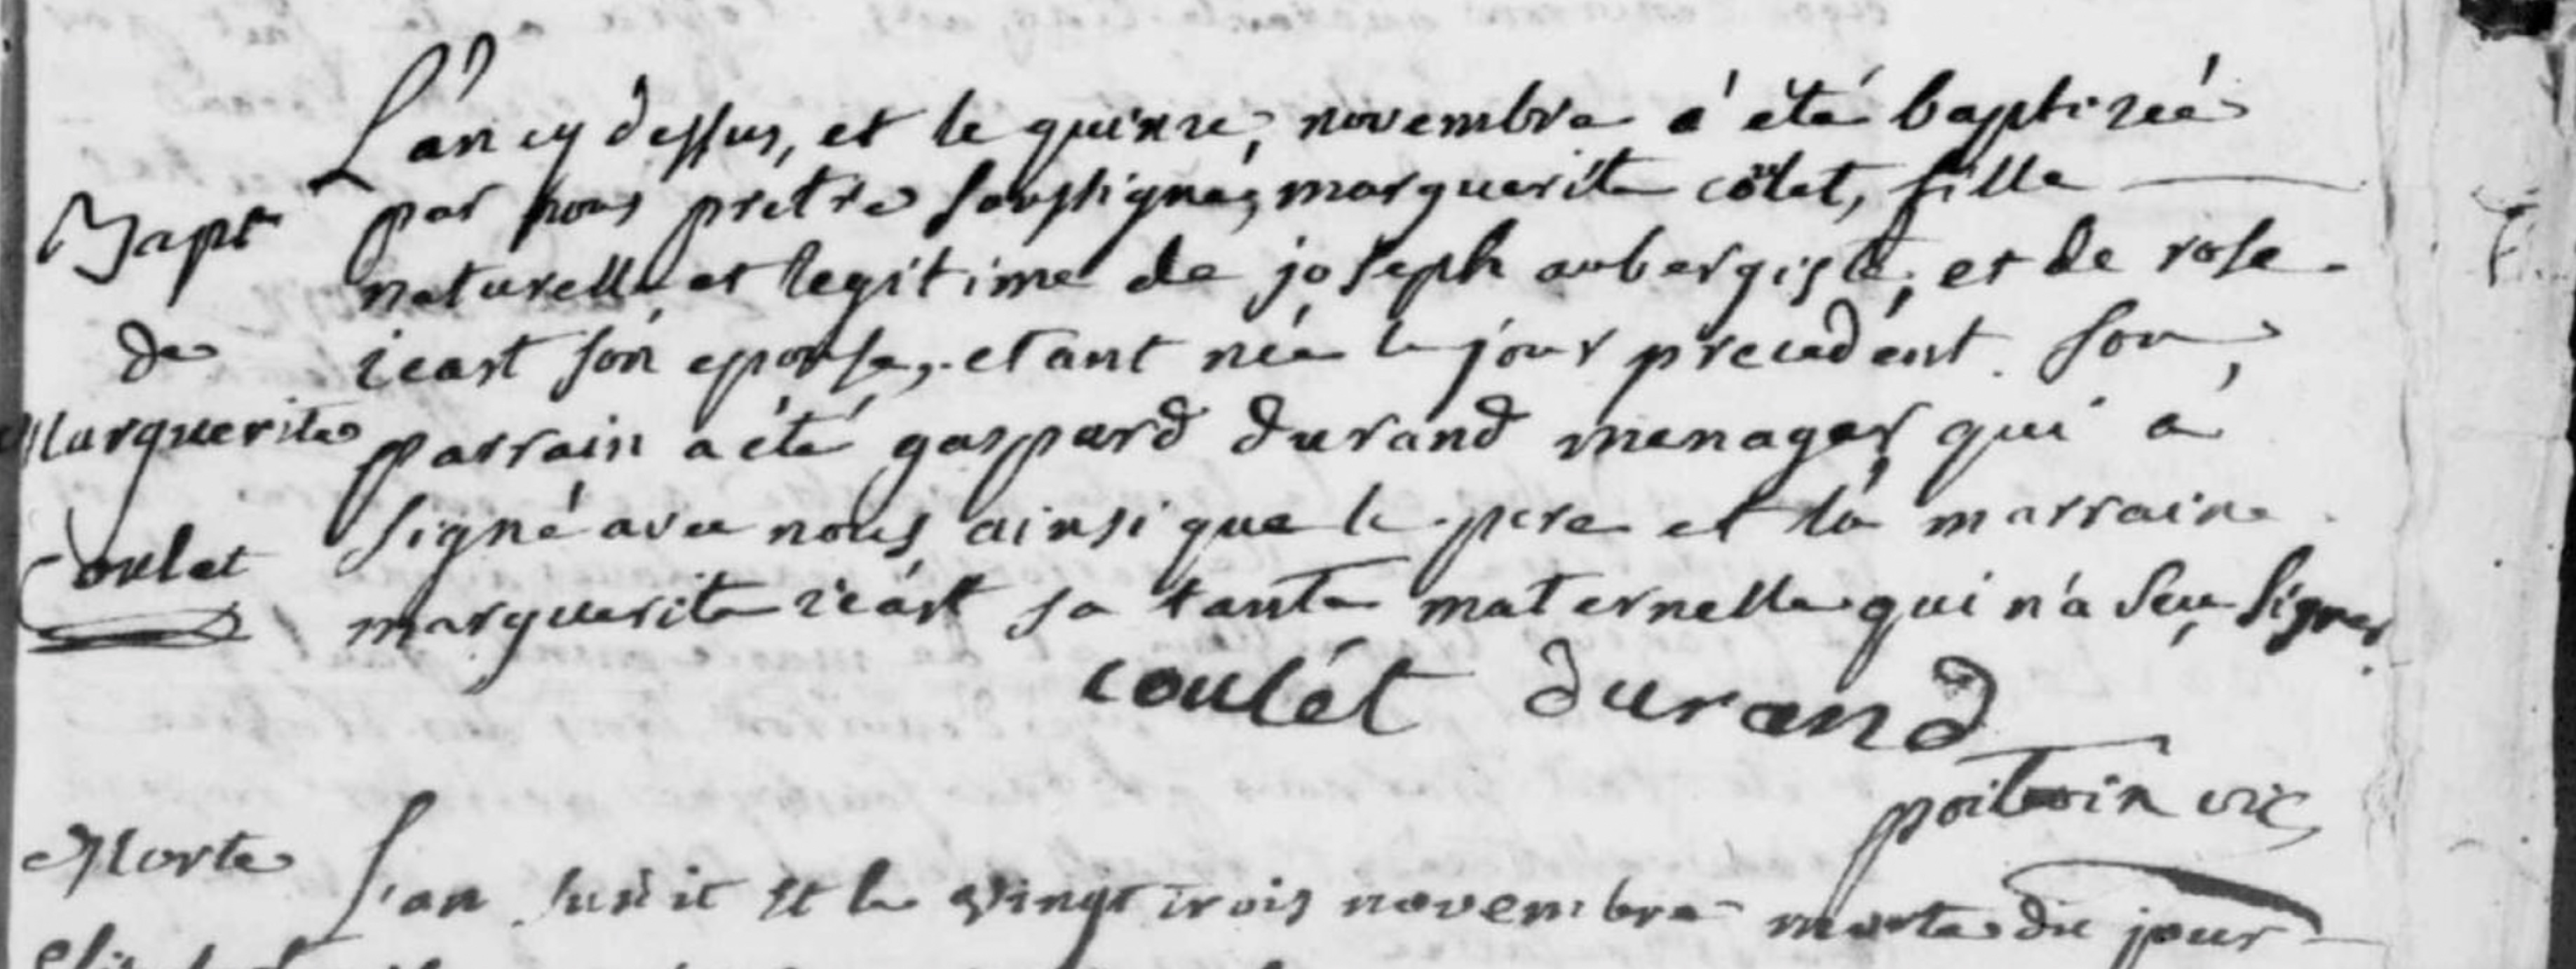 L'an cy dessus, et le quinze, novembre a été baptizée
Bapt par nous pretre soussigné, marguerite côlet, fille
naturelle et legitime de joseph aubergiste, et de rose
de icart son epouse, etant née le jour precedent. son,
Marguerite parrain a été gaspard durand menager qui a
signé avec nous ainsi que le pere et la marraine
Coulet marguerite icart sa tante maternelle qui n'a seu signer
coulét durand
poitevin vic
Morte L'an susdit et le vingt trois novembre morte du jour